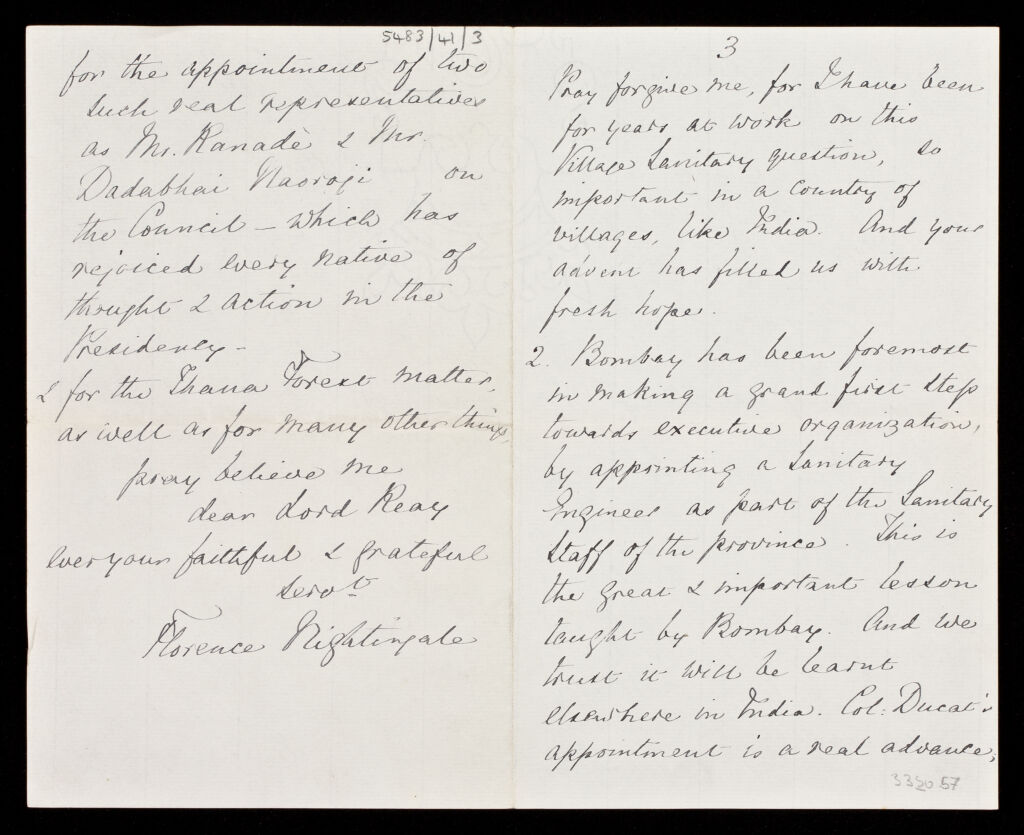 5483/41/3
for the appointment of two
such real representatives
as Mr. Ranadè & Mr.
Dadabhai Naoroji on
the Council – which has
rejoiced every native of
thought & action in the
Presidency –
& for the Thana Forest matter,
as well as for many other things,
pray believe me
dear Lord Reay
ever your faithful & grateful
servt
Florence Nightingale
3
Pray forgive me, for I have been
for years at work on this
Village Sanitary question, so
important in a country of
villages, like India. And your
advent has filled us with
fresh hope.
2. Bombay has been foremost
in making a grand first step
towards executive organization,
by appointing a Sanitary
Engineer as part of the Sanitary
Staff of the province. This is
the great & important lesson
taught by Bombay. And we
trust it will be learnt
elsewhere in India. Col: Ducat's
appointment is a real advance;
335057